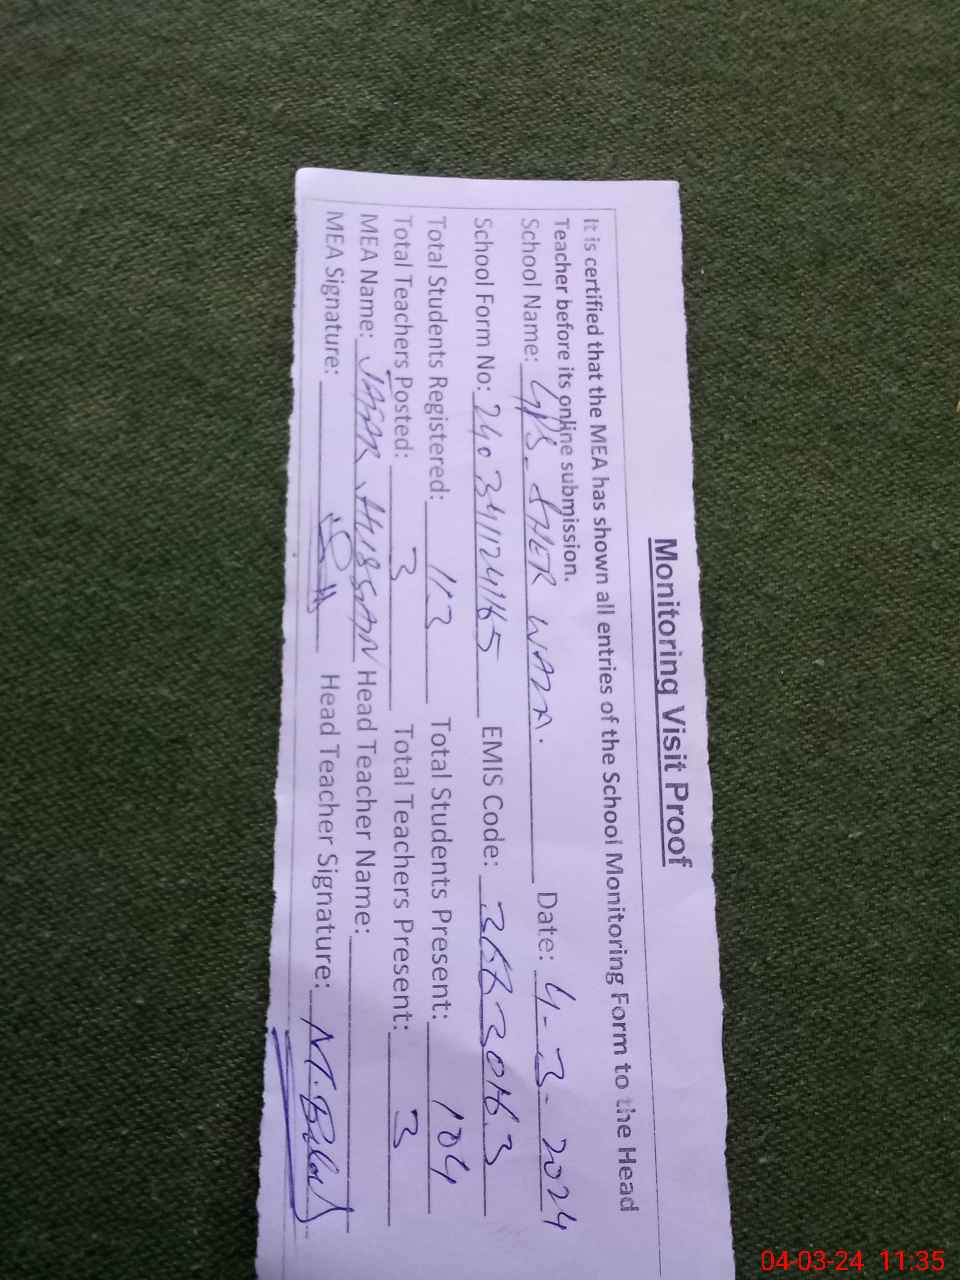 Monitoring Visit Proof
It is certified that the MEA has shown all entries of the School Monitoring Form to the Head
Teacher before its online submission.
School Name: GPS. SHER WAZA. Date: 4-3-2024
School Form No: EMIS Code:
Total Students Registered: 113 Total Students Present: 104
Total Teachers Posted: 3 Total Teachers Present: 3
MEA Name: JAFAR HUSSAN Head Teacher Name:
MEA Signature: Head Teacher Signature: M. Bilal
04-03-24 11:35